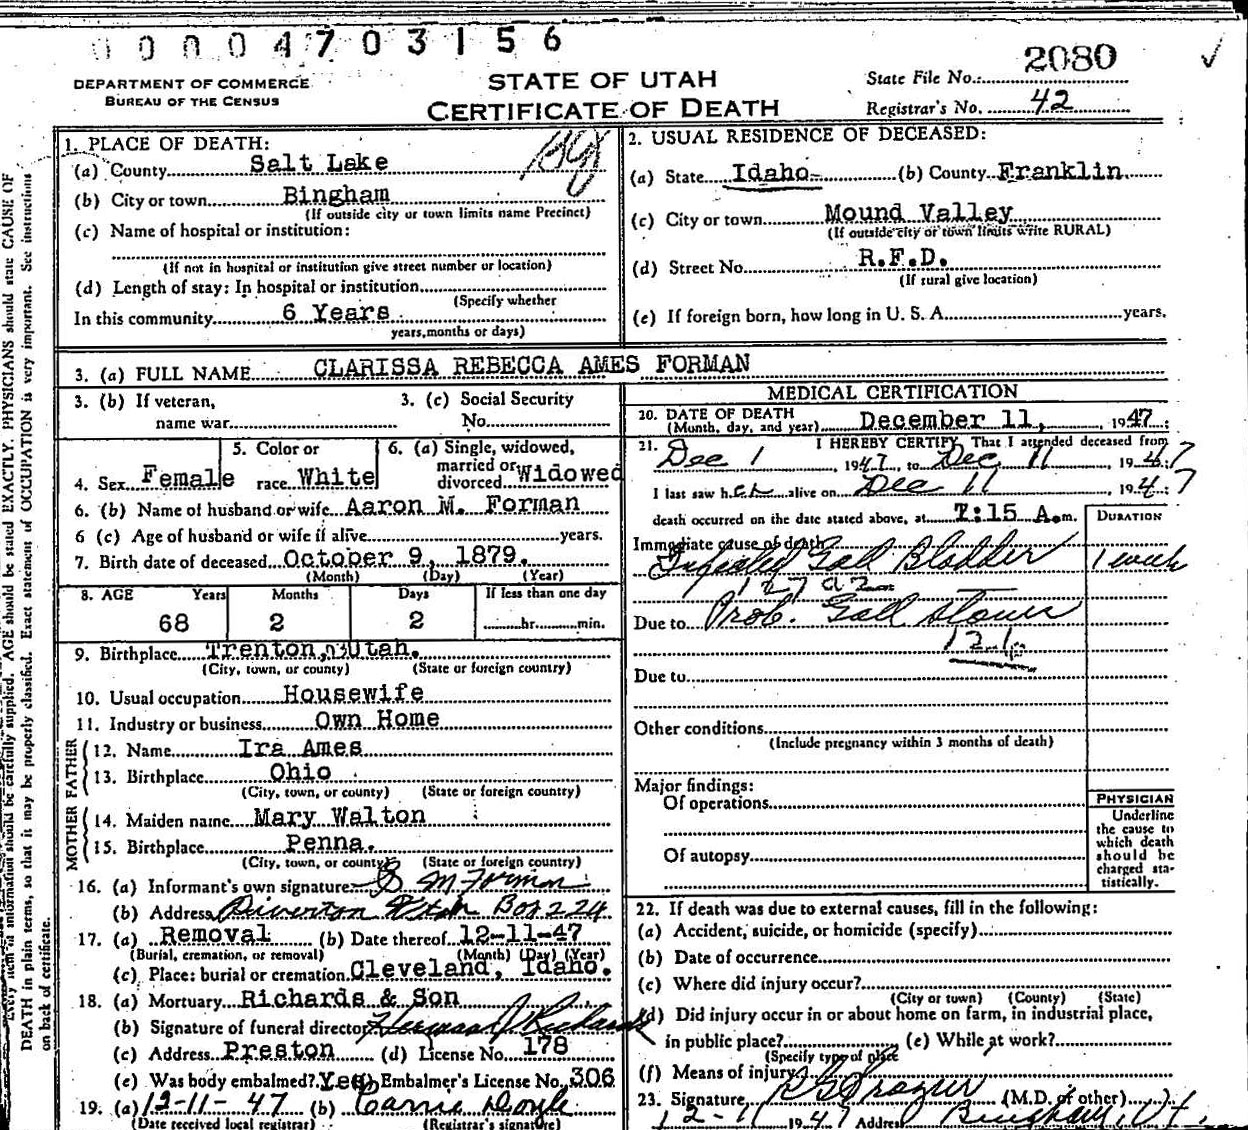 00004703156
DEPARTMENT OF COMMERCE
BUREAU OF THE CENSUS
STATE OF UTAH
CERTIFICATE OF DEATH
State File No. 2080
Registrar's No. 42
1. PLACE OF DEATH:
(a) County Salt Lake
(b) City or town Bingham
(If outside city or town limits name Precinct)
(c) Name of hospital or institution:
(If not in hospital or institution give street number or location)
(d) Length of stay: In hospital or institution
(Specify whether
In this community 6 Years
years, months or days)
2. USUAL RESIDENCE OF DECEASED:
(a) State Idaho (b) County Franklin
(c) City or town Mound Valley
(If outside city or town limits write RURAL)
(d) Street No. R.F.D.
(If rural give location)
(e) If foreign born, how long in U. S. A. years.
3. (a) FULL NAME CLARISSA REBECCA AMES FORMAN
3. (b) If veteran, name war
3. (c) Social Security No.
4. Sex Female
5. Color or race White
6. (a) Single, widowed, married or divorced Widowed
6. (b) Name of husband or wife Aaron M. Forman
6 (c) Age of husband or wife if alive years.
7. Birth date of deceased October 9, 1879.
(Month) (Day) (Year)
8. AGE Years Months Days If less than one day
68 2 2 hr. min.
9. Birthplace Trenton, Utah.
(City, town, or county) (State or foreign country)
10. Usual occupation Housewife
11. Industry or business Own Home
FATHER
12. Name Ira Ames
13. Birthplace Ohio
(City, town, or county) (State or foreign country)
MOTHER
14. Maiden name Mary Walton
15. Birthplace Penna.
(City, town, or county) (State or foreign country)
16. (a) Informant's own signature M Forman
(b) Address Riverton Utah Box 224
17. (a) Removal (b) Date thereof 12-11-47
(Burial, cremation, or removal) (Month) (Day) (Year)
(c) Place: burial or cremation Cleveland, Idaho.
18. (a) Mortuary Richards & Son
(b) Signature of funeral director Herman J Richards
(c) Address Preston (d) License No. 178
(e) Was body embalmed? Yes Embalmer's License No. 306
19. (a) 12-11-47 (b) Carrie Doyle
(Date received local registrar) (Registrar's signature)
MEDICAL CERTIFICATION
20. DATE OF DEATH
(Month, day, and year) December 11, 1947
21. I HEREBY CERTIFY, That I attended deceased from
Dec 1, 1947, to Dec 11, 1947
I last saw her alive on Dec 11 1947
death occurred on the date stated above, at 7:15 A.m.
DURATION
Immediate cause of death
Infected Gall Bladder 1 week
127a2
Due to Prob. Gall Stones
Due to
Other conditions
(Include pregnancy within 3 months of death)
Major findings:
Of operations
Of autopsy
PHYSICIAN
Underline
the cause to
which death
should be
charged sta-
tistically.
22. If death was due to external causes, fill in the following:
(a) Accident, suicide, or homicide (specify)
(b) Date of occurrence
(c) Where did injury occur?
(City or town) (County) (State)
(d) Did injury occur in or about home on farm, in industrial place,
in public place? (e) While at work?
(Specify type of place
(f) Means of injury
23. Signature Frazier (M.D. of other)
12-11 1947 Address Bingham, Ut.
DEATH in plain terms, so that it may be properly classified. Exact statement of OCCUPATION is very important. See instructions
on back of certificate.
information should be carefully supplied. AGE should be stated EXACTLY. PHYSICIANS should state CAUSE OF